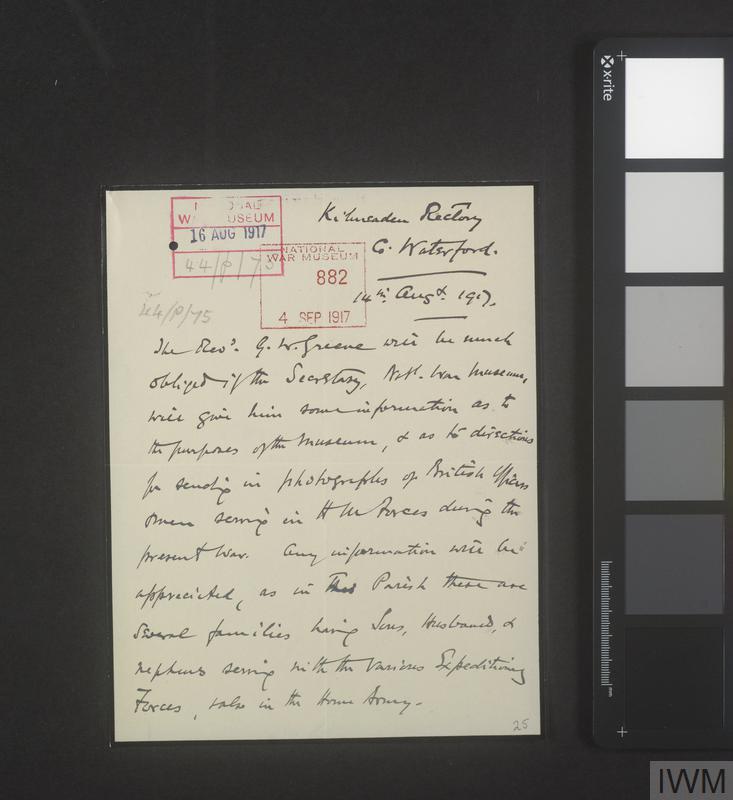 Kilmeaden Rectory
Co. Waterford.
14th. Augst. 1917.
NATIONAL
WAR MUSEUM
16 AUG 1917
44/P/75
NATIONAL
WAR MUSEUM
882
4 SEP 1917
44/P/75
The Revd. G. W. Greene will be much
obliged if the Secretary, Natl. War Museum,
will give him some information as to
the purposes of the Museum, & as to directions
for sending in photographs of British Officers
& men serving in H M Forces during the
present War. Any information will be
appreciated, as in This Parish there are
several families having Sons, Husbands, &
nephews serving with the various Expeditionary
Forces, & also in the Home Army.
25
x-rite
mm
IWM